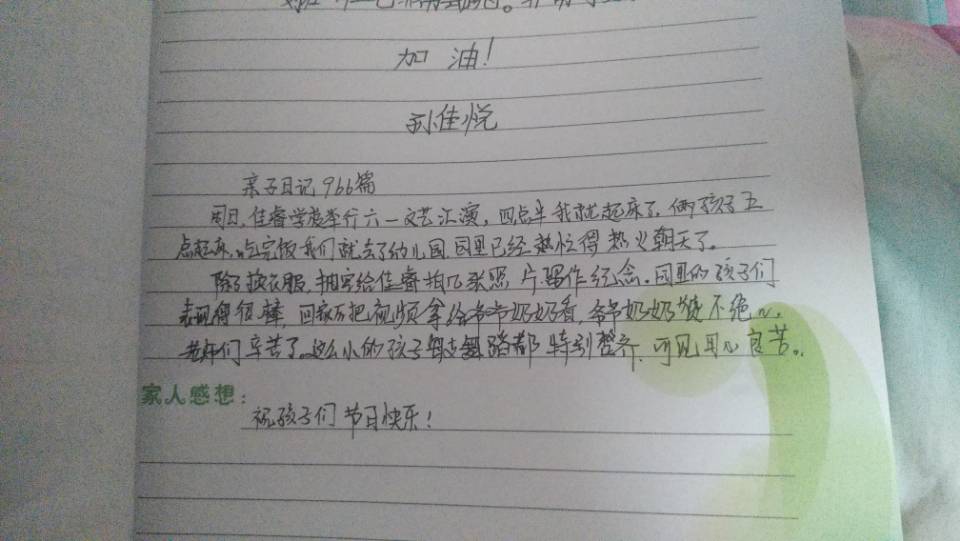 加油！
孙佳悦
亲子日记966篇
周日，佳睿学校举行六一文艺汇演，四点半我就起床了，俩孩子五
点起床，吃完饭我们就去了幼儿园，园里已经热忙得热火朝天了。
除了换衣服，抽空给佳睿拍几张照片留作纪念。园里的孩子们
表现得很棒，回家后把视频拿给爷爷奶奶看，爷爷奶奶赞不绝口，
老师们辛苦了，这么小的孩子舞蹈都特别整齐，可见用心良苦。
家人感想：
祝孩子们节日快乐！